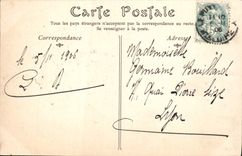 Carte Postale
Tous les pays étrangers n'acceptent pas la correspondance au recto.
Se renseigner à la poste.
Correspondance
Adresse
le 5/11 1906
Mademoiselle
Germaine Bouillard
Quai Pierre Scize
Lyon